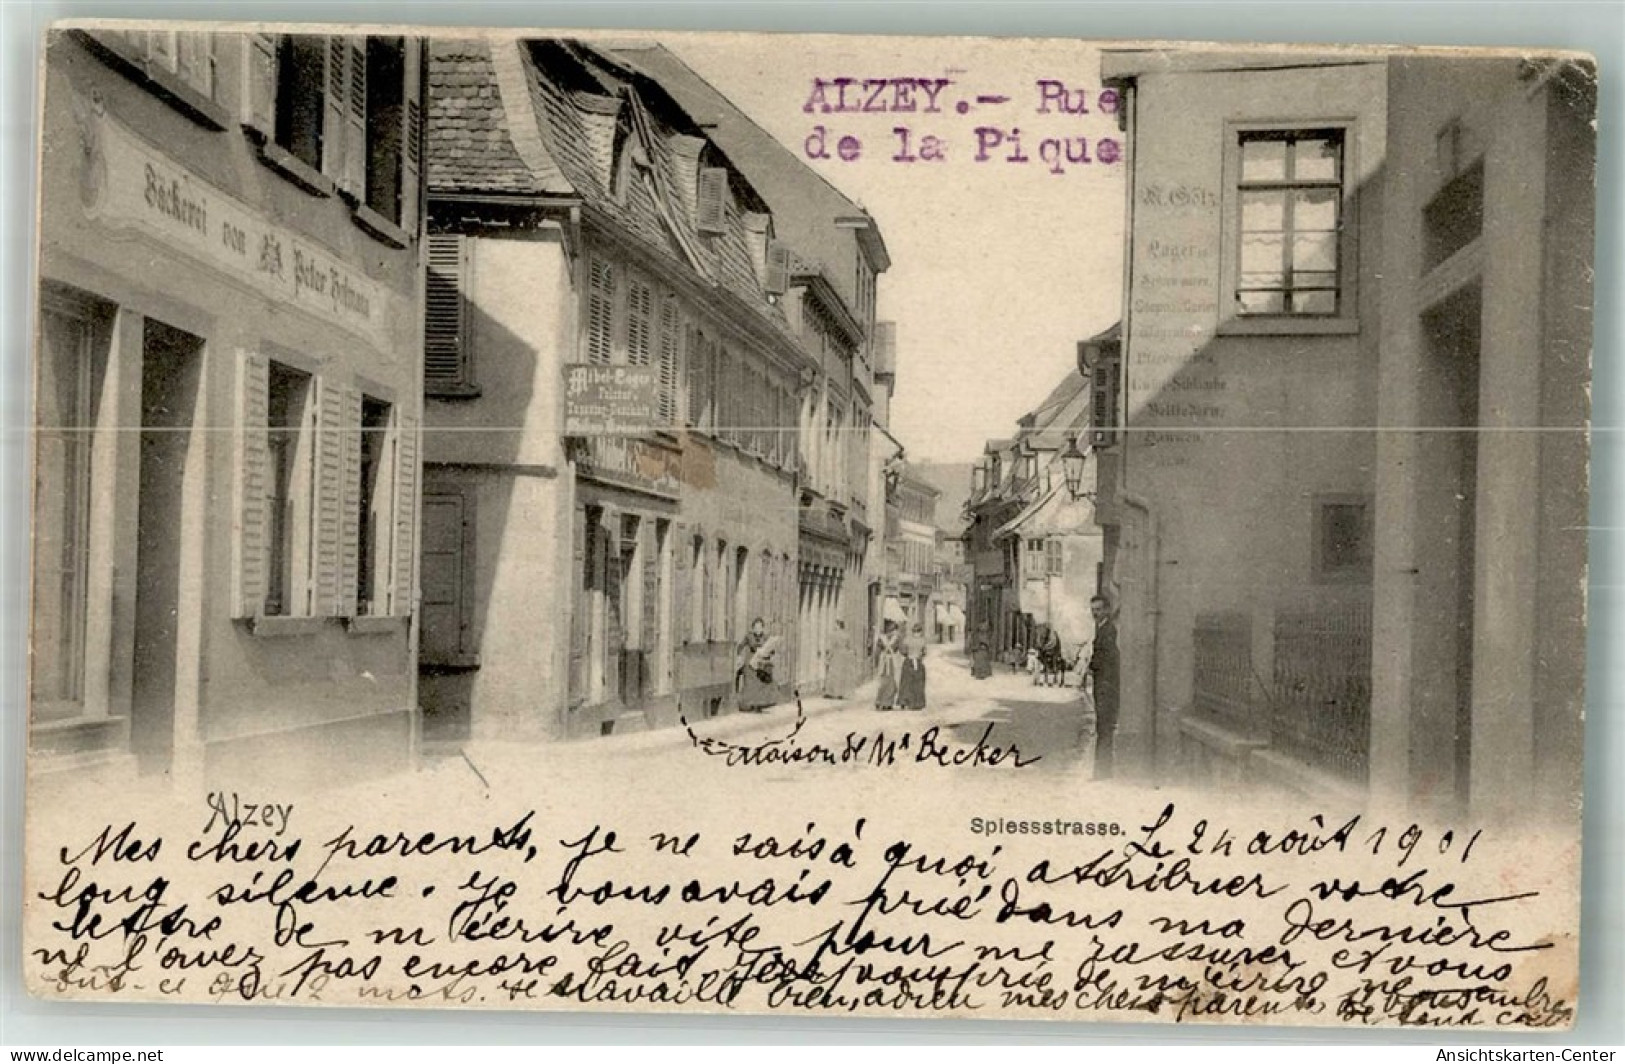 ALZEY.- Rue
de la Pique
Bäckerei von Peter Hofmann
Möbel-Lager
K. Götz
Lager
Maison de Mr Becker
Alzey
Spiessstrasse.
Le 24 août 1901
Mes chers parents, je ne sais à quoi attribuer votre
long silence. Je vous avais prié dans ma dernière
lettre de m'écrire vite pour me rassurer et vous
ne l'avez pas encore fait. Je vous prie de m'écrire ne
fût-ce que 2 mots. Je travaille bien, adieu mes chers parents, je vous embrasse
de tout cœur
delcampe.net
Ansichtskarten-Center